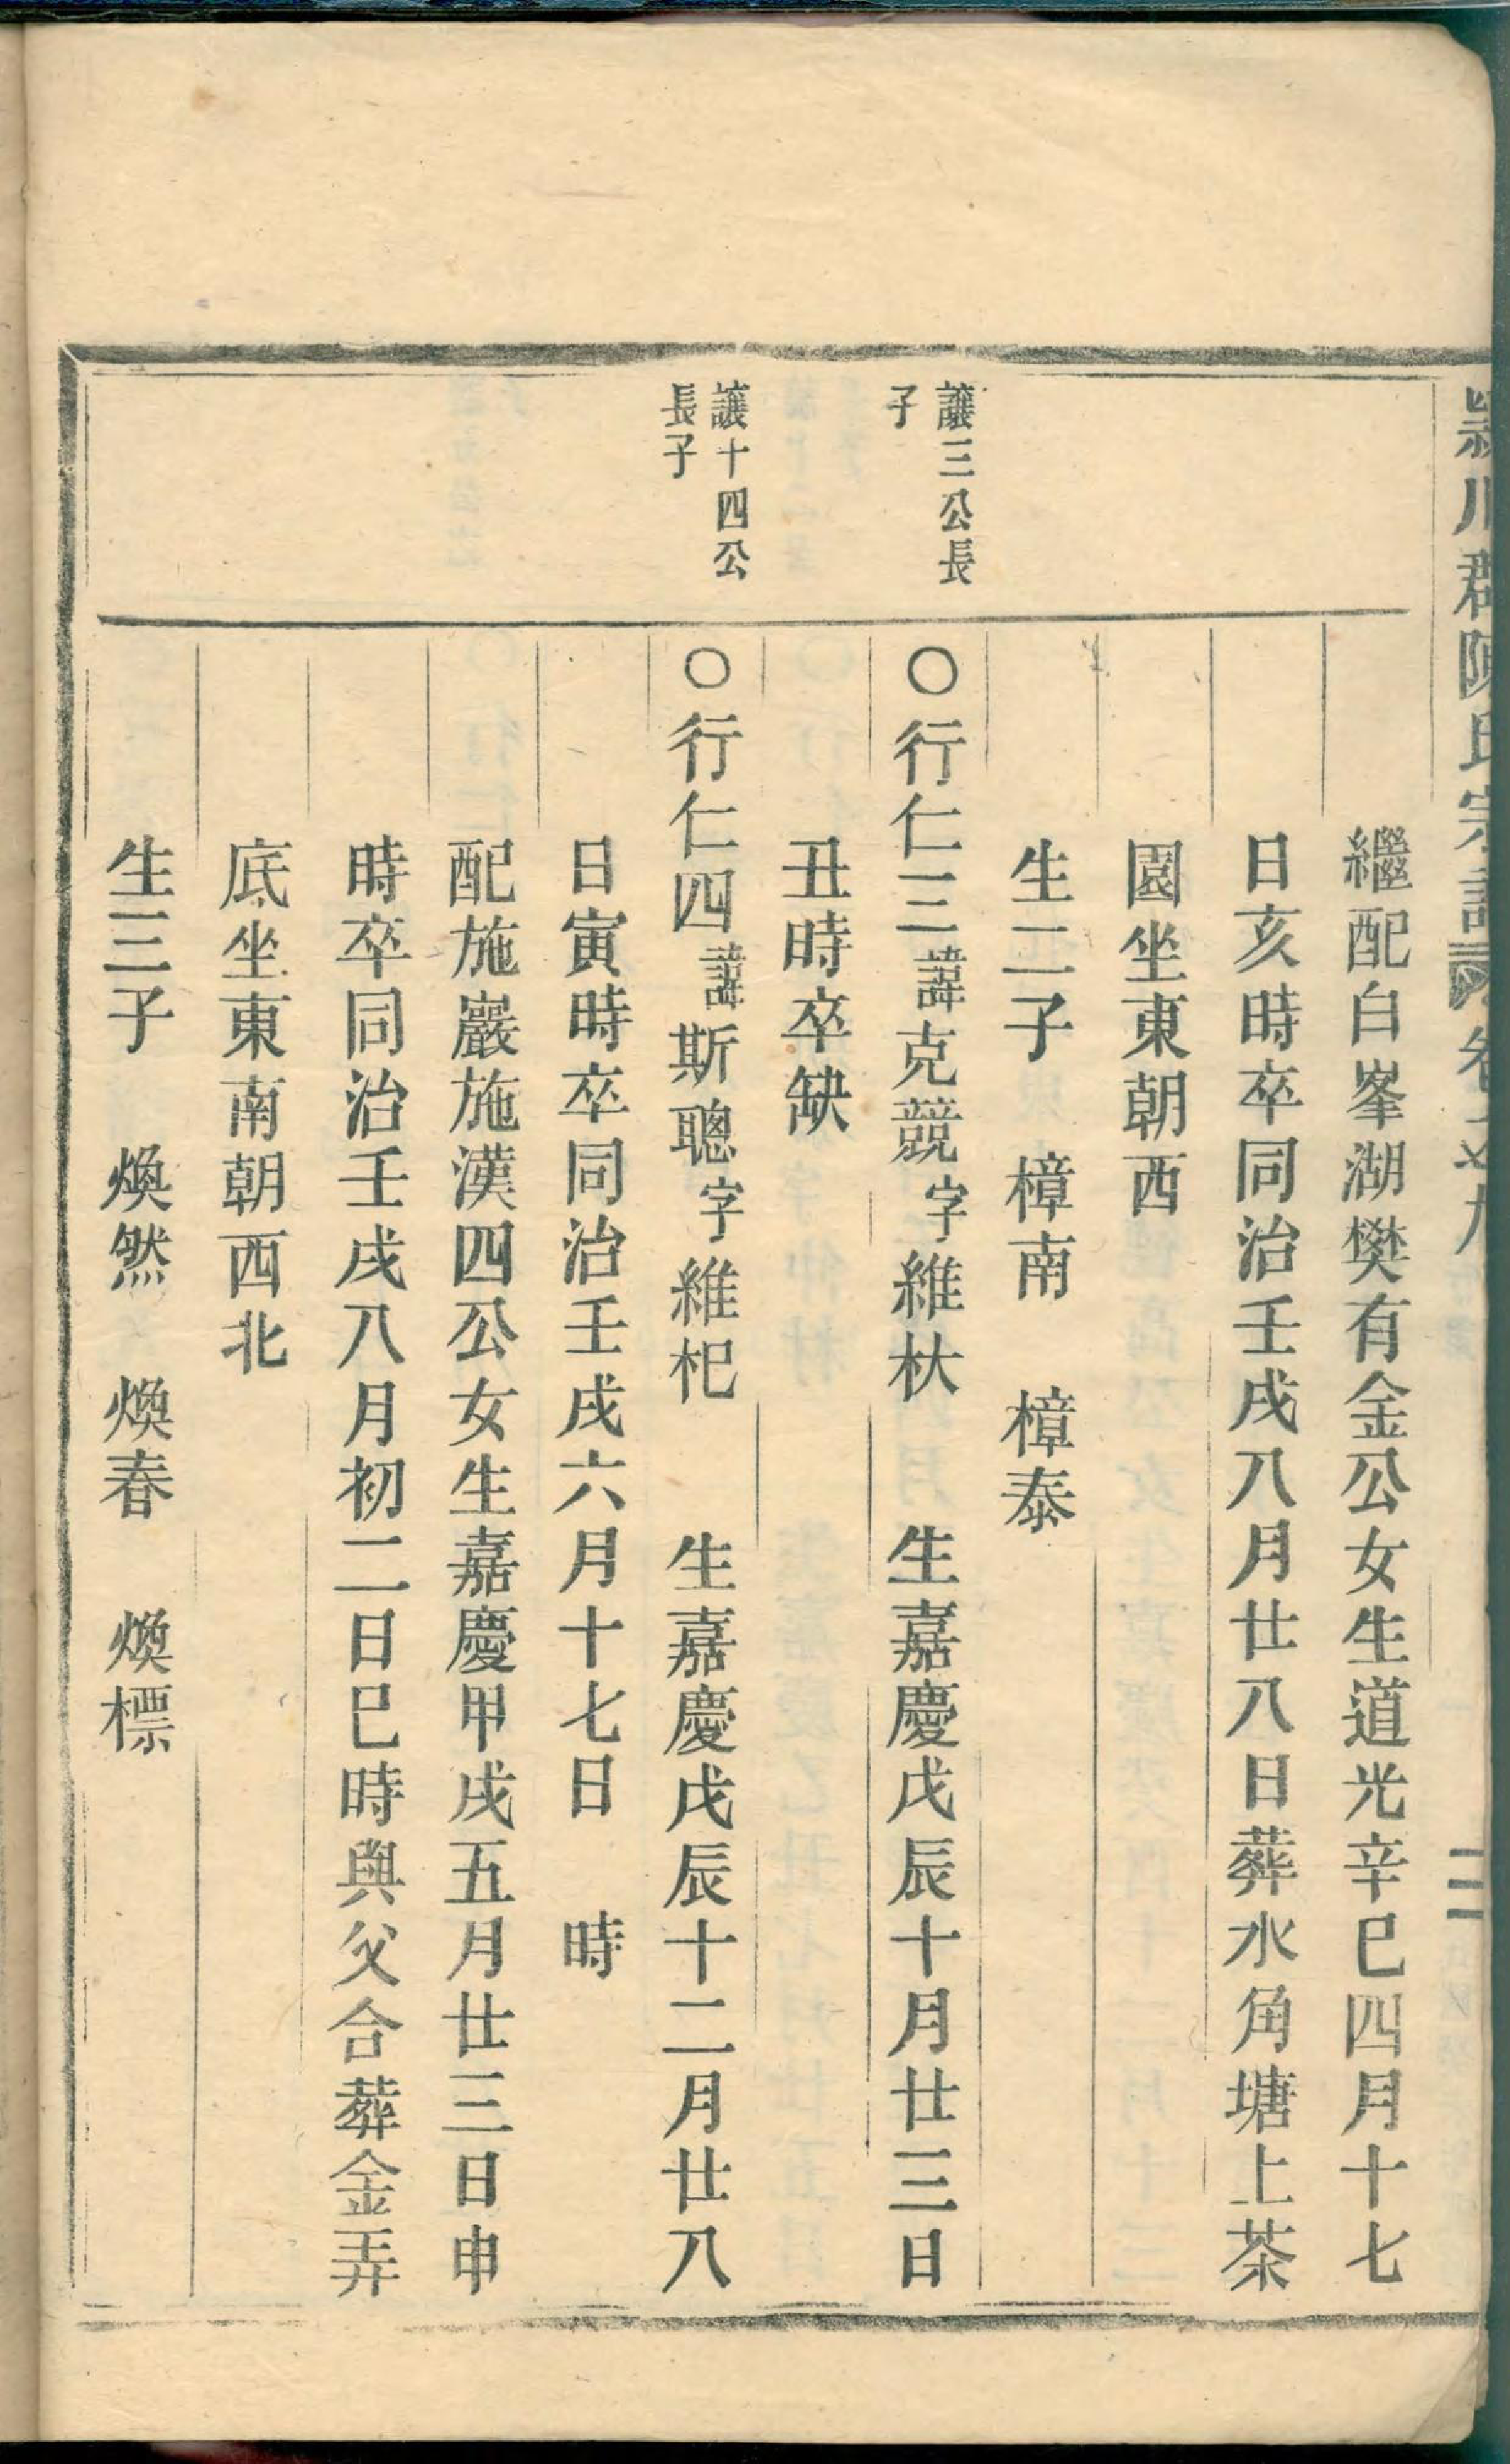 潁川郡陳氏宗譜 卷之九 二
繼配白峯湖樊有金公女生道光辛巳四月十七
日亥時卒同治壬戌八月廿八日葬水角塘上茶
園坐東朝西
生二子 樟南 樟泰
讓三公長
子
○行仁三諱克競字維杕 生嘉慶戊辰十月廿三日
丑時卒缺
讓十四公
長子
○行仁四諱斯聰字維杞 生嘉慶戊辰十二月廿八
日寅時卒同治壬戌六月十七日 時
配施巖施漢四公女生嘉慶甲戌五月廿三日申
時卒同治壬戌八月初二日巳時與父合葬金弄
底坐東南朝西北
生三子 煥然 煥春 煥標